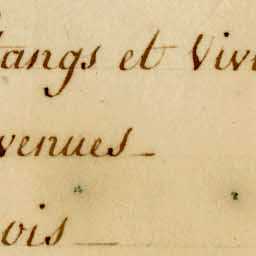 tangs et Vivi
venues
ois